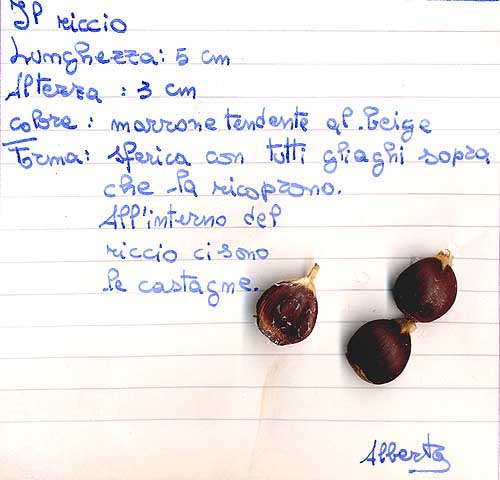 Il riccio
Lunghezza: 5 cm
Altezza : 3 cm
colore : marrone tendente al beige
Forma: sferica con tutti gli aghi sopra
che la ricoprono.
All'interno del
riccio ci sono
le castagne.
Alberta